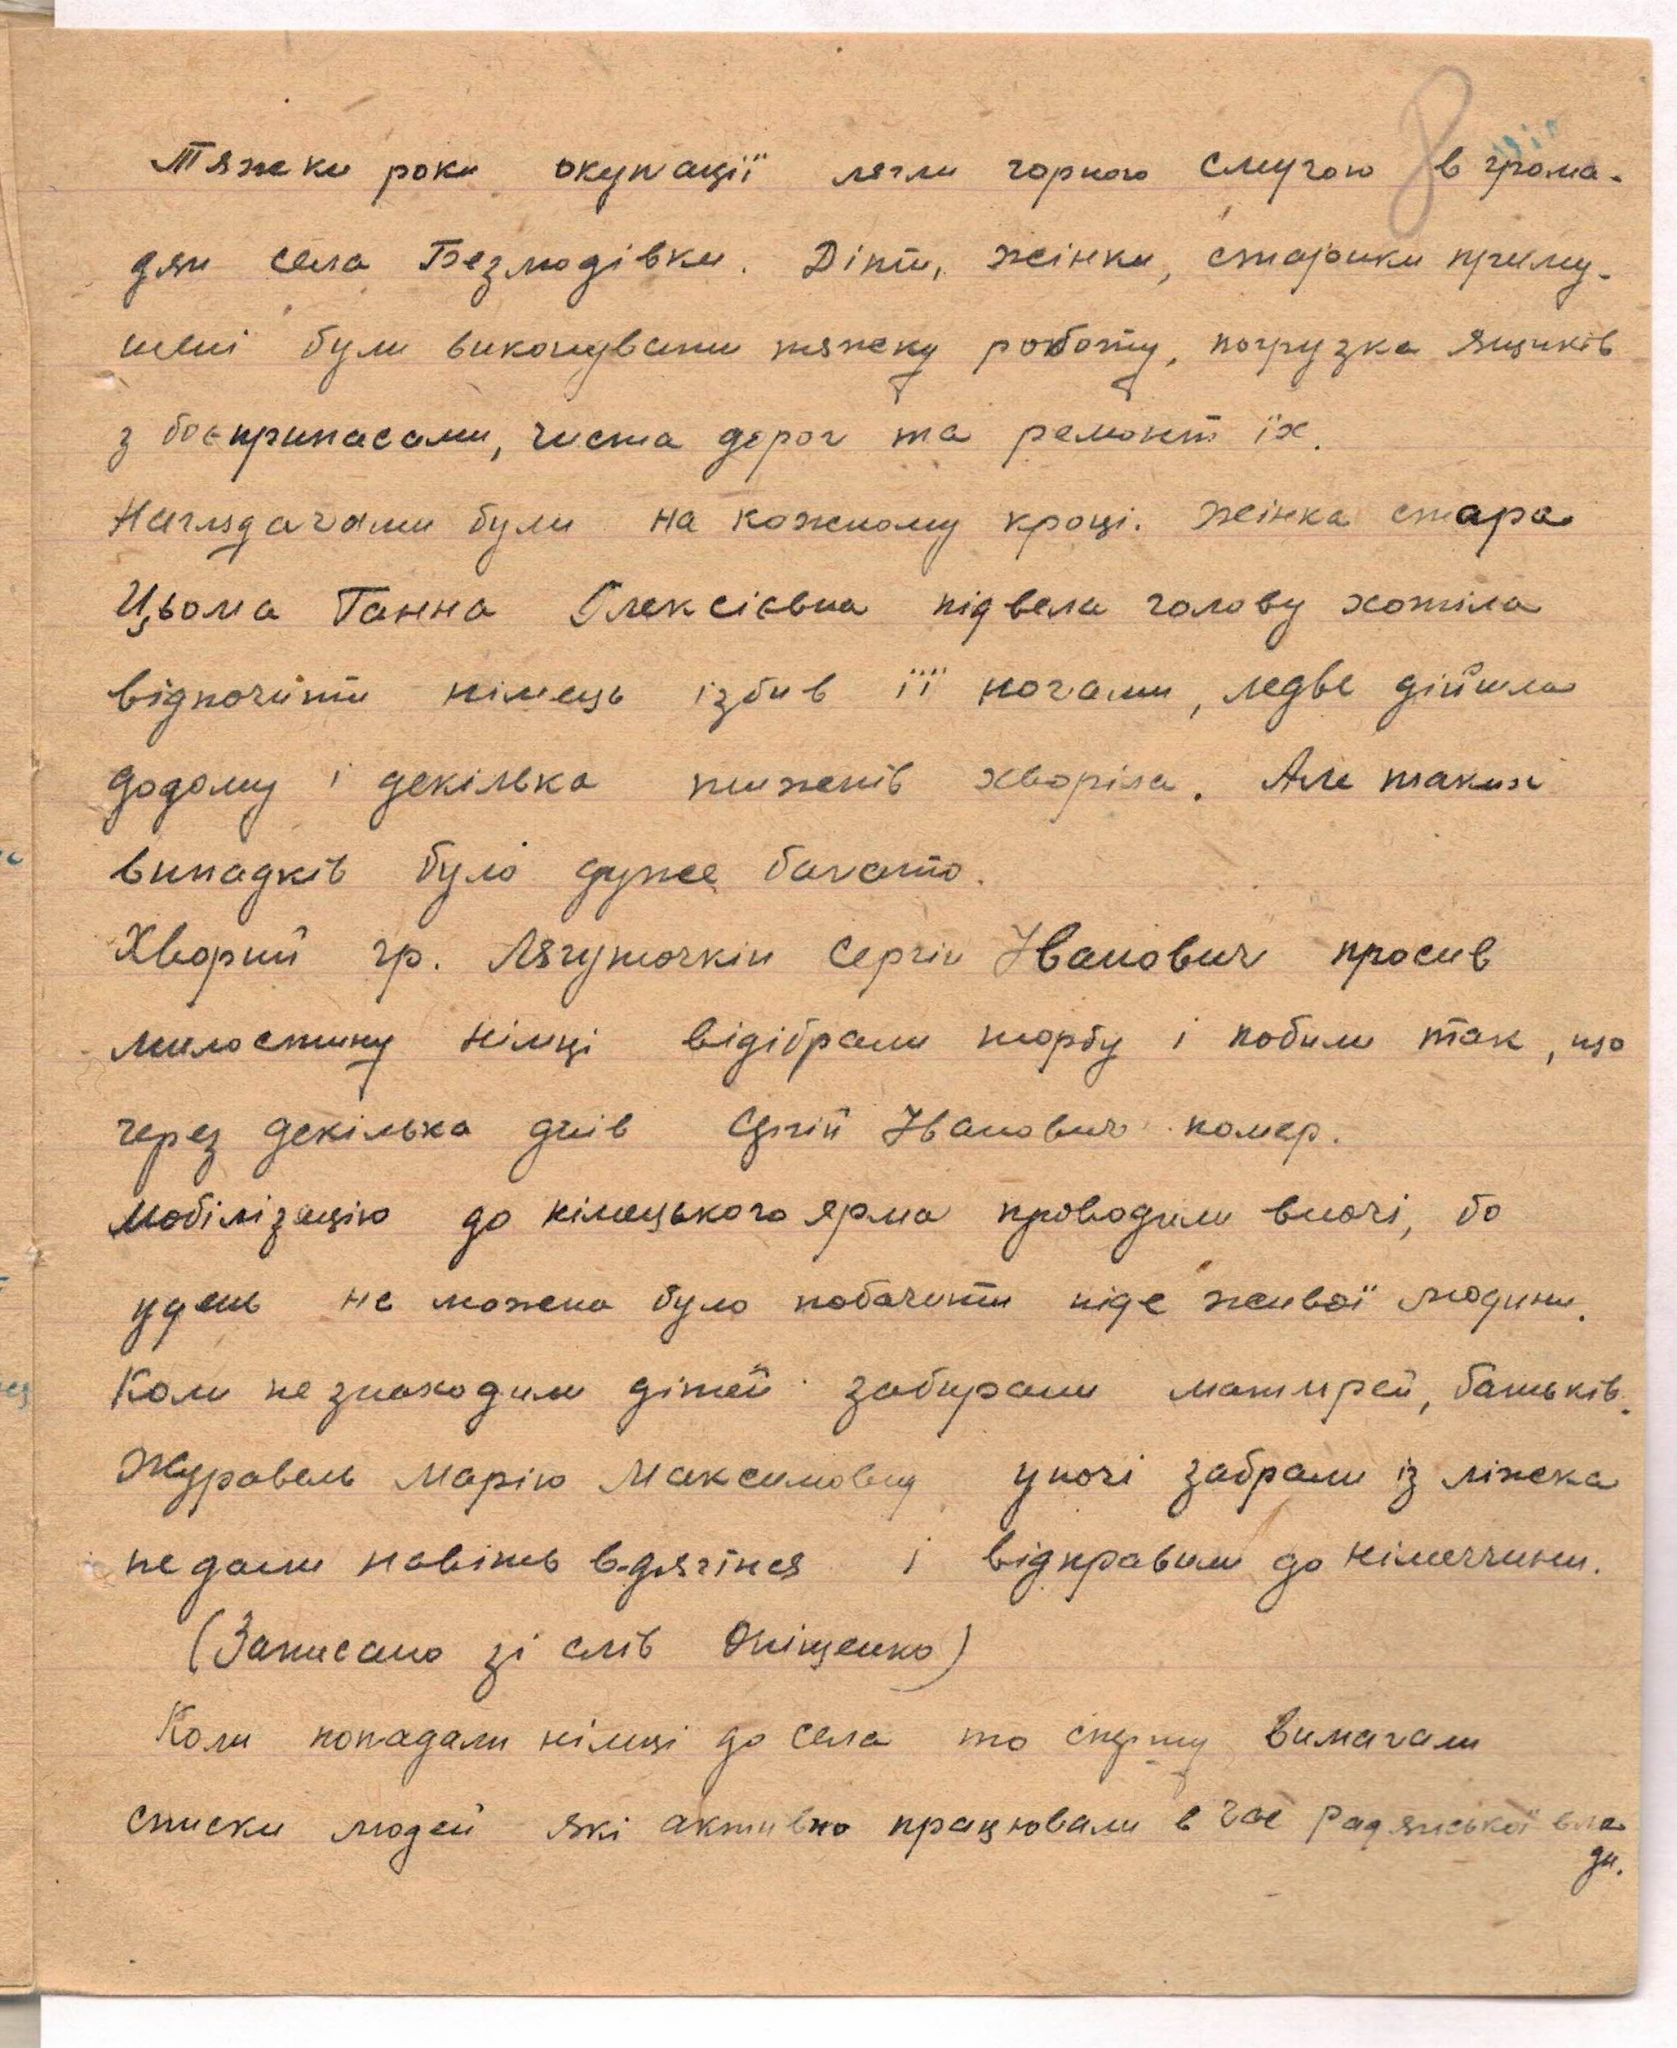 8
Тяжки роки окупації лягли чорною смугою в грома-
дян села Безлюдівки. Діти, жінки, старики приму-
шені були виконувати тяжку роботу, погрузка ящиків
з боєприпасами, чистка дорог та ремонт їх.
Наглядачами були на кожному кроці. Жінка стара
Цьома Ганна Олексієвна підвела голову хотіла
відпочити німець ізбив її ногами, ледве дійшла
додому і декілька тижнів хворіла. Але таких
випадків було дуже багато.
Хворий гр. Лягушочкін Сергій Іванович просив
милостину німці відібрали торбу і побили так, що
через декілька днів Сергій Іванович помер.
Мобілізацію до німецького ярма проводили вночі, бо
удень не можена було побачити ніде живої людини.
Коли не знаходили дітей забирали матирей, батьків.
Журавель Марію Максимовну уночі забрали із ліжка
не дали навіть вдягтися і відправили до німеччини.
(Записано зі слів Оніщенко)
Коли попадали німці до села то спершу вимагали
списки людей які активно працювали в час Радянської вла
ди.